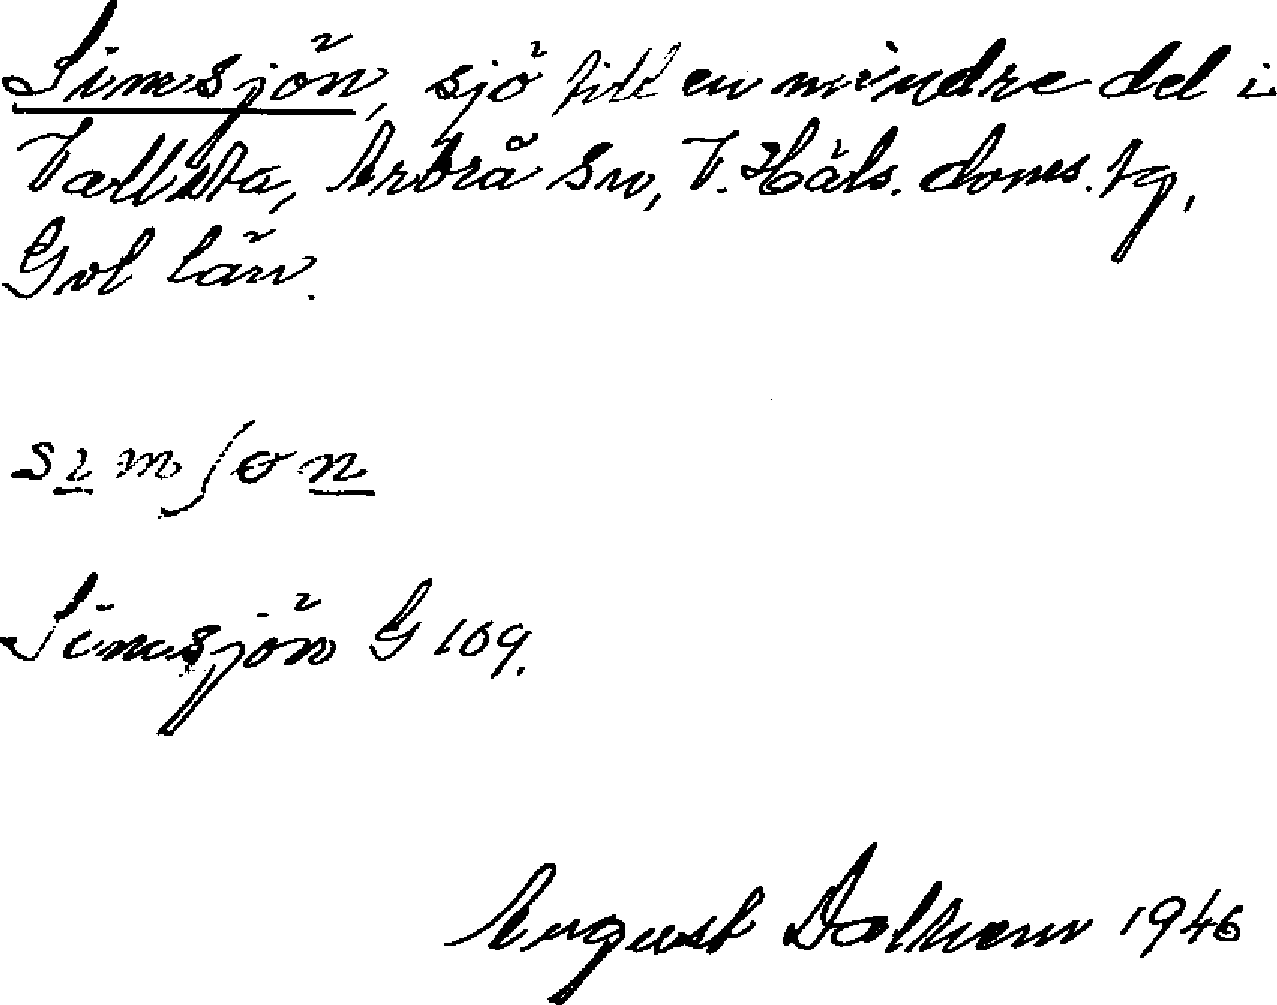 Simsjön, sjö till en mindre del i
Vallsta, Arbrå sn, V. Häls. doms. tg,
Gvl län.
sımʃɵn
Simsjön G 109.
August Dalhem 1946